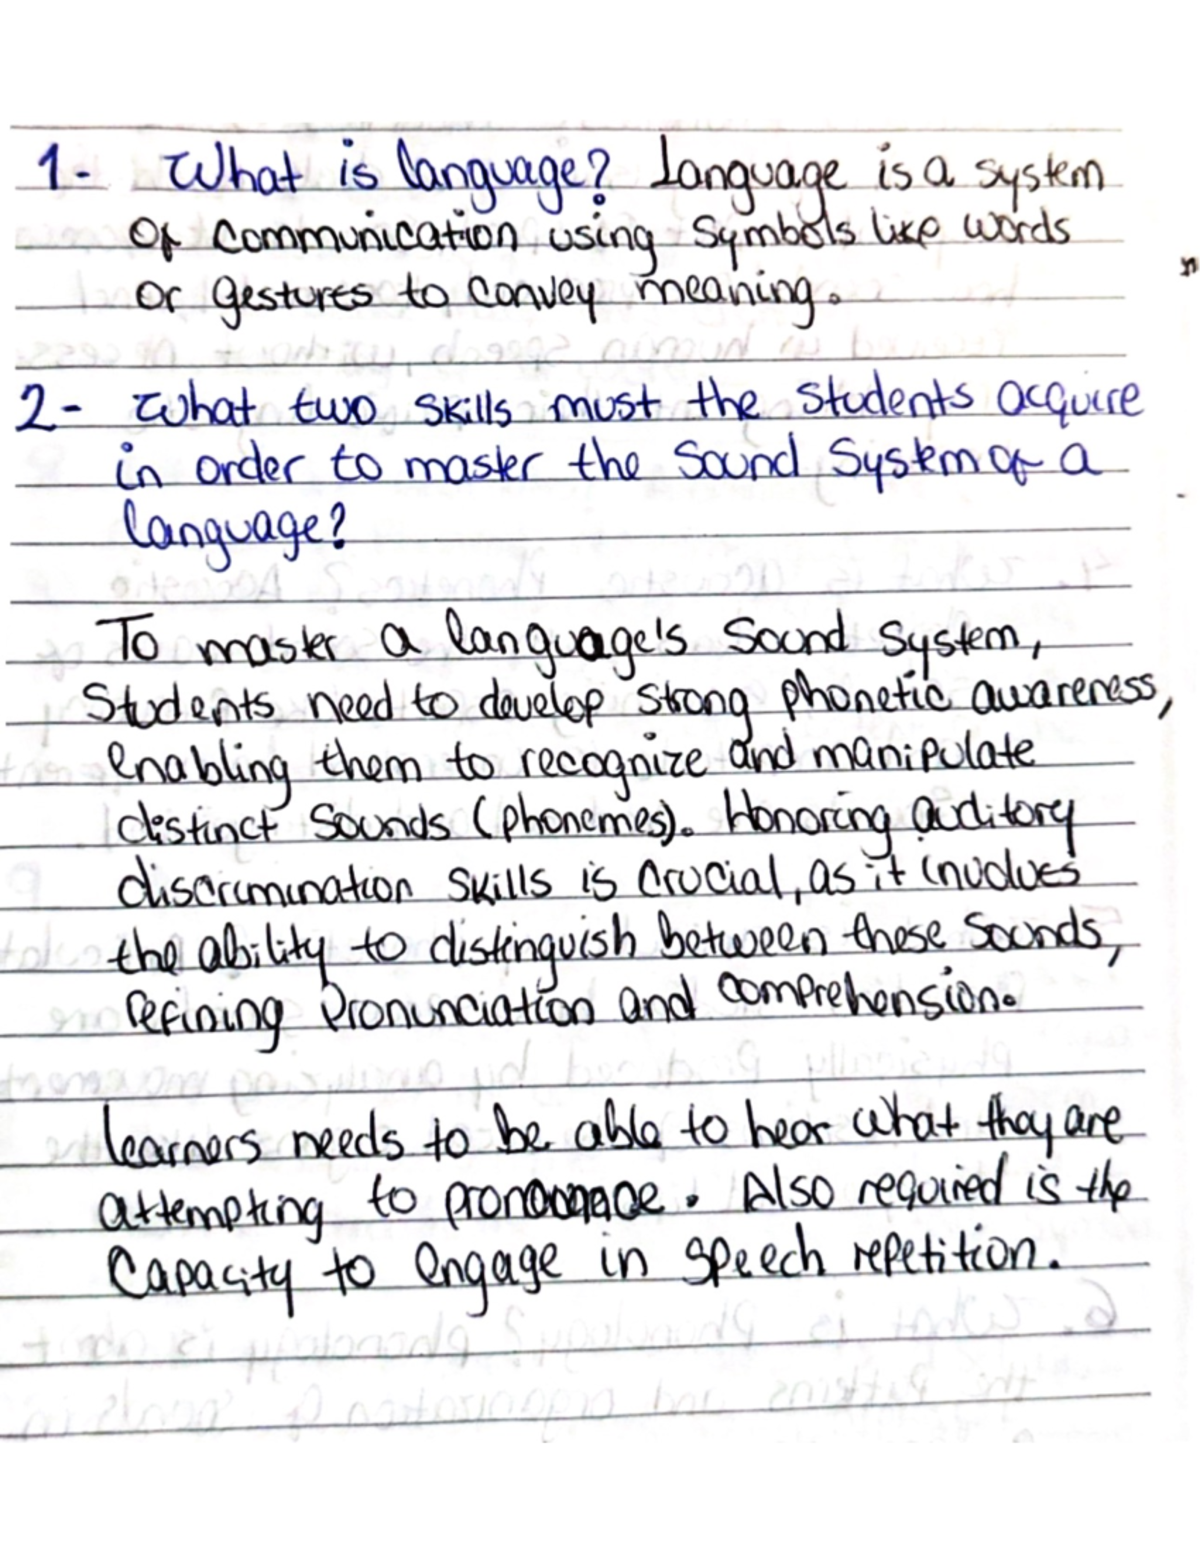 1- What is language? Language is a system
of communication using symbols like words
or gestures to convey meaning.
2- What two skills must the students acquire
in order to master the sound system of a
language?
To master a language's sound system,
students need to develop strong phonetic awareness,
enabling them to recognize and manipulate
distinct sounds (phonemes). Honoring auditory
discrimination skills is crucial, as it involves
the ability to distinguish between these sounds,
refining pronunciation and comprehension.
learners needs to be able to hear what they are
attempting to
. Also required is the
capacity to engage in speech repetition.